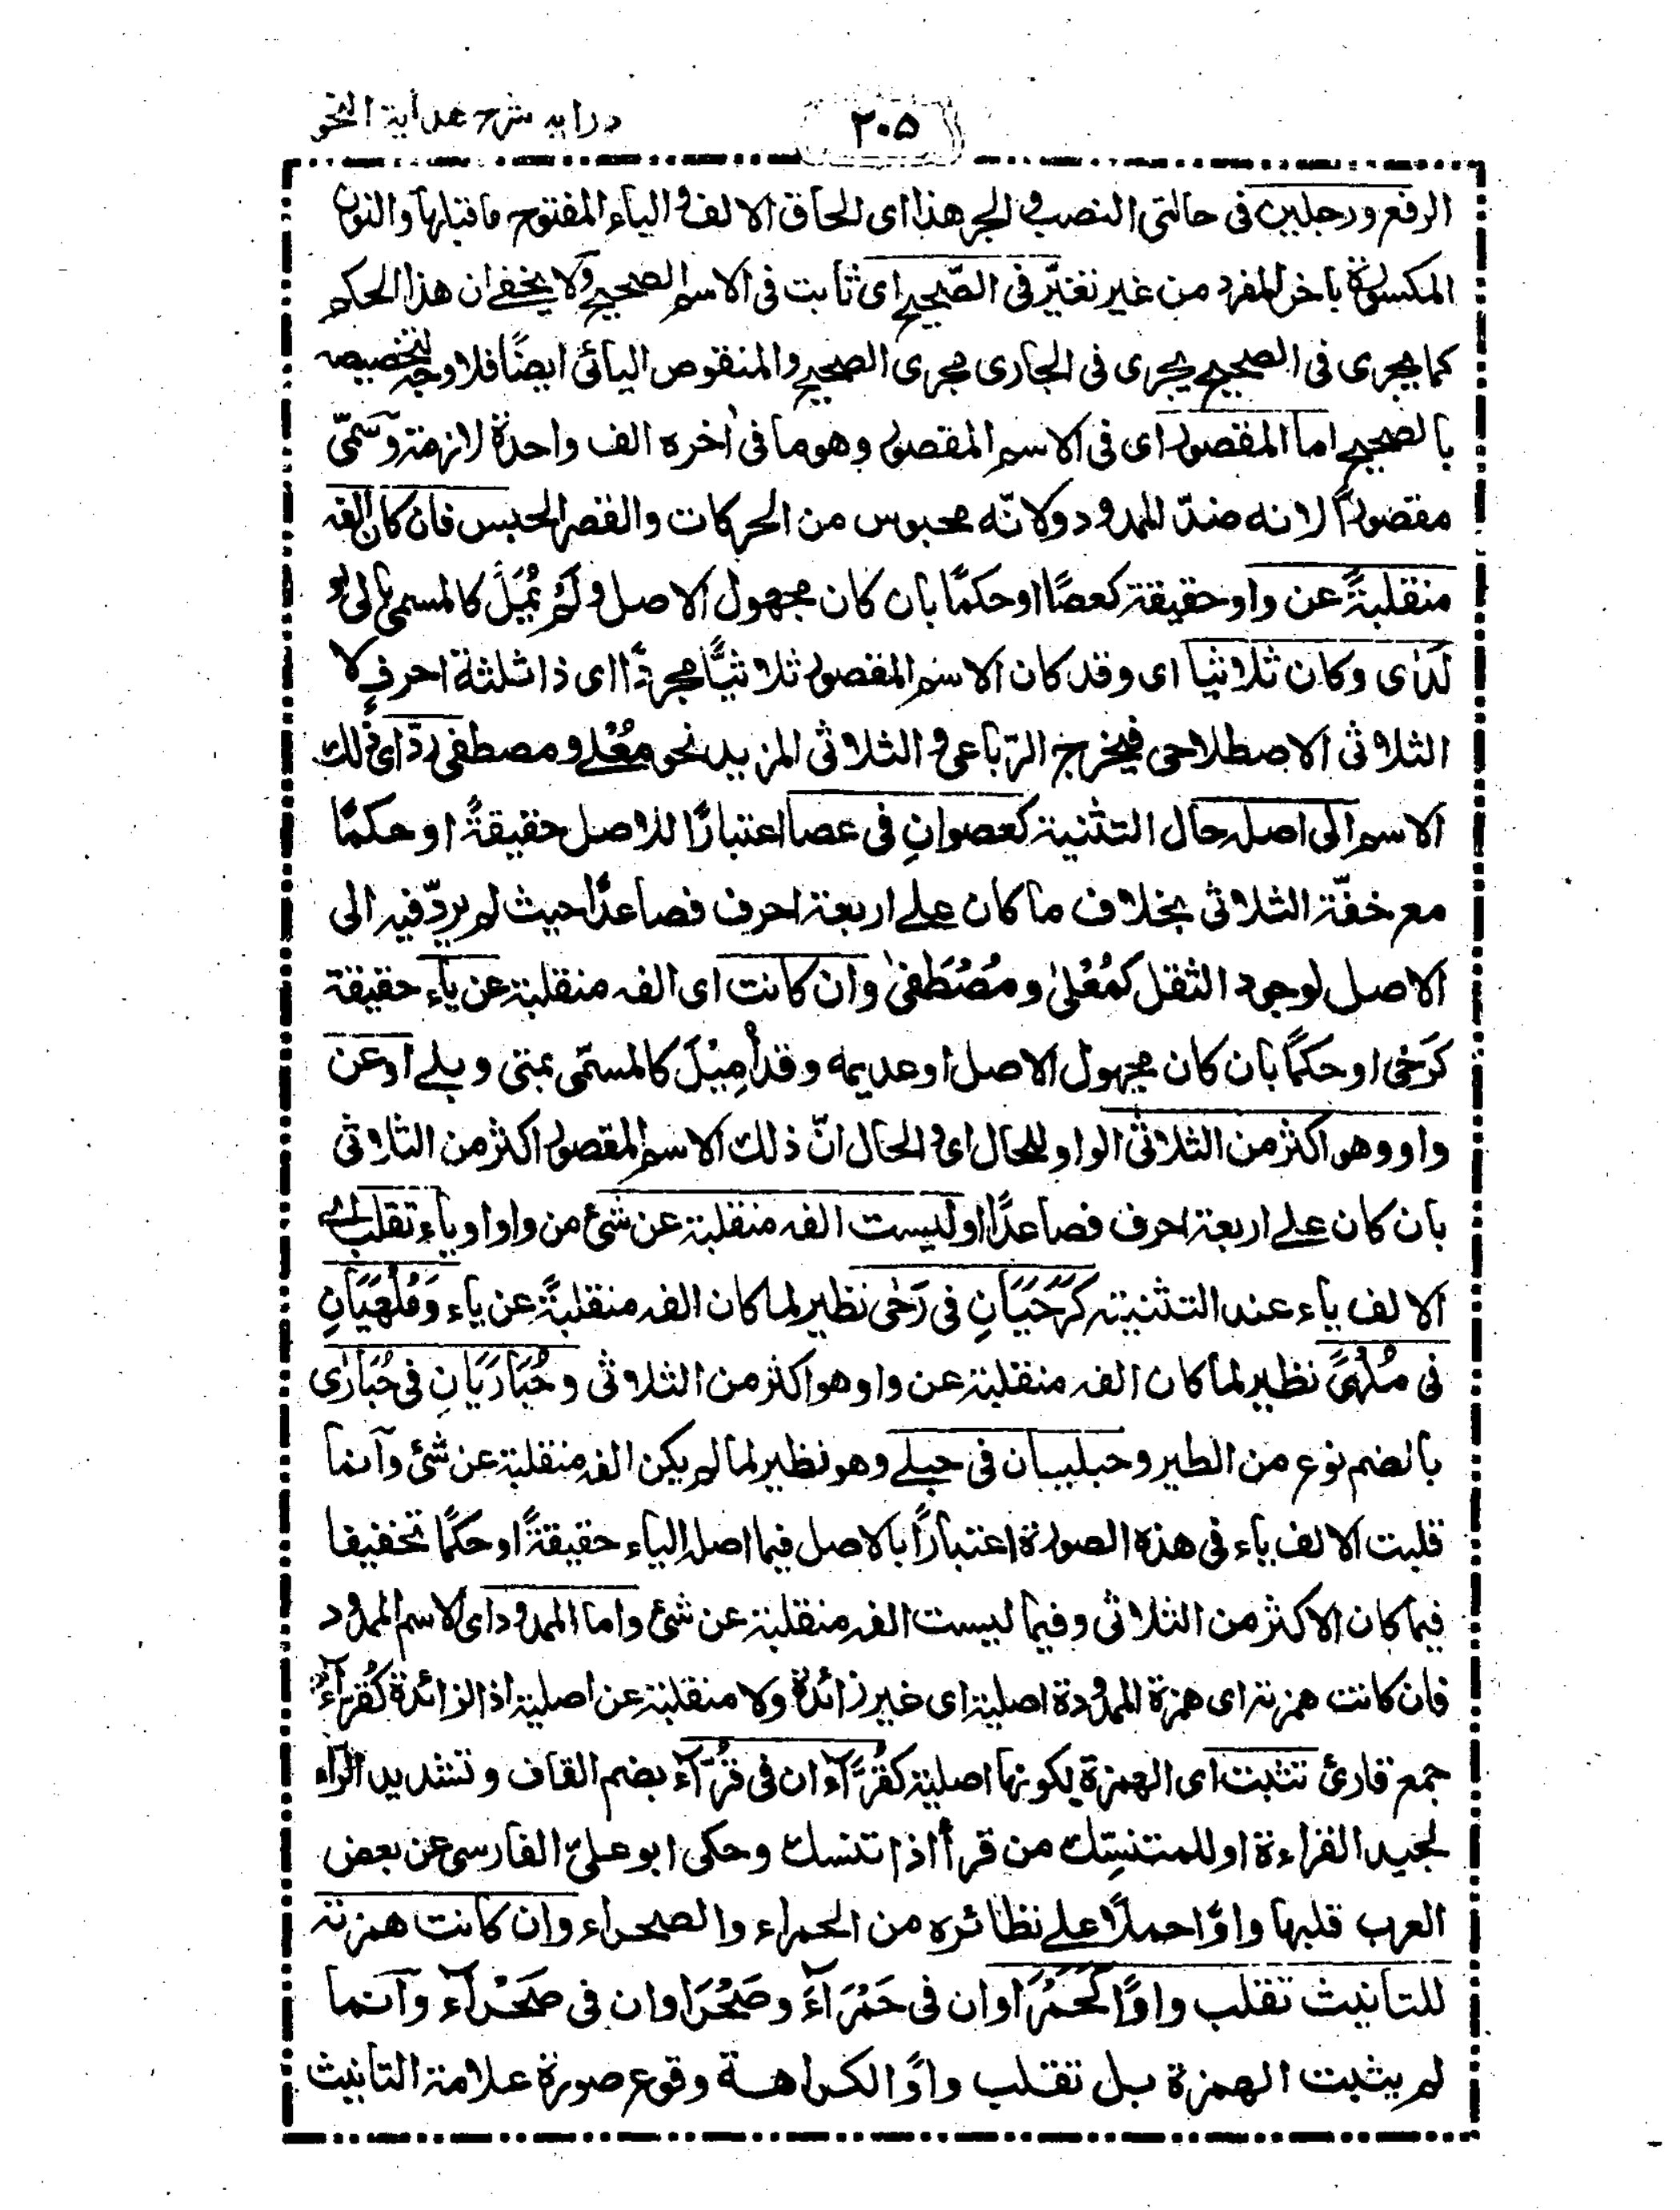 ٢٠٥
درایہ شرح ھدایۃ النحو
الرفع ورجلین فی حالتی النصب والجر ھذا ای الحاق الالف والیاء المفتوح ماقبلہا والنون
المکسورۃ بآخر المفرد من غیر تغیّر فی الصّحیح ای ثابت فی الاسم الصحیح ولا یخفے ان ھذا الحکم
کما یجری فی الصحیح یجری فی الجاری مجری الصحیح والمنقوص الیائی ایضًا فلا وجہ لتخصیصہ
بالصحیح اما المقصور ای فی الاسم المقصور وھو ما فی آخرہ الف واحدۃ لازمۃ وسمّی
مقصورًا لانہ ضدّ الممدود ولانّہ محبوس من الحرکات والقصر الحبس فان کان الفہ
منقلبۃً عن واو حقیقۃ کعصًا او حکمًا بان کان مجھول الاصل ولَمْ یُمَلْ کالمسمی بالی او
لَدٰی وکان ثلاثیا ای وقد کان الاسم المقصور ثلاثیًّا مجردًا ای ذا ثلثۃ احرفٍ لا
الثلاثی الاصطلاحی فیخرج الرّباعی والثلاثی المزید نحو مُعْلے ومصطفی ردّ ای ذٰلک
الاسم الی اصلہ حال التثنیۃ کعصوانِ فی عصا اعتبارًا للاصل حقیقۃً او حکمًا
مع خفّۃ الثلاثی بخلاف ما کان علے اربعۃ احرف فصاعدًا حیث لم یردّ فیہ الی
الاصل لوجود الثقل کمُعْلیٰ ومُصْطَفیٰ وان کانت ای الفہ منقلبۃ عن یآء حقیقۃ
کرَحیً او حکمًا بان کان مجہول الاصل او عدیمہ وقد اُمِیْلَ کالمسمّی بمتی وبلے او عن
واو وھو اکثر من الثلاثی الواو للحال ای والحال انّ ذلک الاسم المقصور اکثر من الثلاثی
بان کان علے اربعۃ احرف فصاعدًا او لیست الفہ منقلبۃ عن شئ من واو او یاء تقلب
الالف یاء عند التثنیۃ کرَحَیَانِ فی رَحٰی نظیر لما کان الفہ منقلبۃً عن یاء ومُلْھَیَانِ
فی مُلْہیً نظیر لما کان الفہ منقلبۃ عن واو وھو اکثر من الثلاثی وحُبَارَیَانِ فی حُبَارٰی
بالضم نوع من الطیر وحبلییان فی حبلے وھو نظیر لما لم یکن الفہ منقلبۃ عن شئ وانما
قلبت الالف یاء فی ھذہ الصورۃ اعتبارًا بالاصل فیما اصلہ الیاء حقیقۃً او حکمًا تخفیفا
فیما کان الاکثر من الثلاثی وفیما لیست الفہ منقلبۃ عن شئ واما الممدود ای الاسم الممدود
فان کانت ھمزتہ ای ھمزۃ الممدودۃ اصلیۃ ای غیر زائدۃ ولا منقلبۃ عن اصلیۃ اذ الزائدۃ کقُرّآءٌ
جمع قارئ تثبت ای الھمزۃ لکونہا اصلیۃ کقُرّآءَان فی قُرّآءٌ بضم القاف وتشدید الرّاء
لجید القراءۃ او للمتنسِّک من قرأ اذا تنسک وحکی ابو علیّ الفارسی عن بعض
العرب قلبہا واوًا حملًا علے نظائرہ من الحمراء والصحراء وان کانت ھمزتہ
للتأنیث تقلب واوًا کحَمْرَاوان فی حَمْرَآءَ وصَحْرَاوان فی صَحْرَآءَ وانما
لم یثبت الھمزۃ بل تقلب واوًا لکراھۃ وقوع صورۃ علامۃ التأنیث